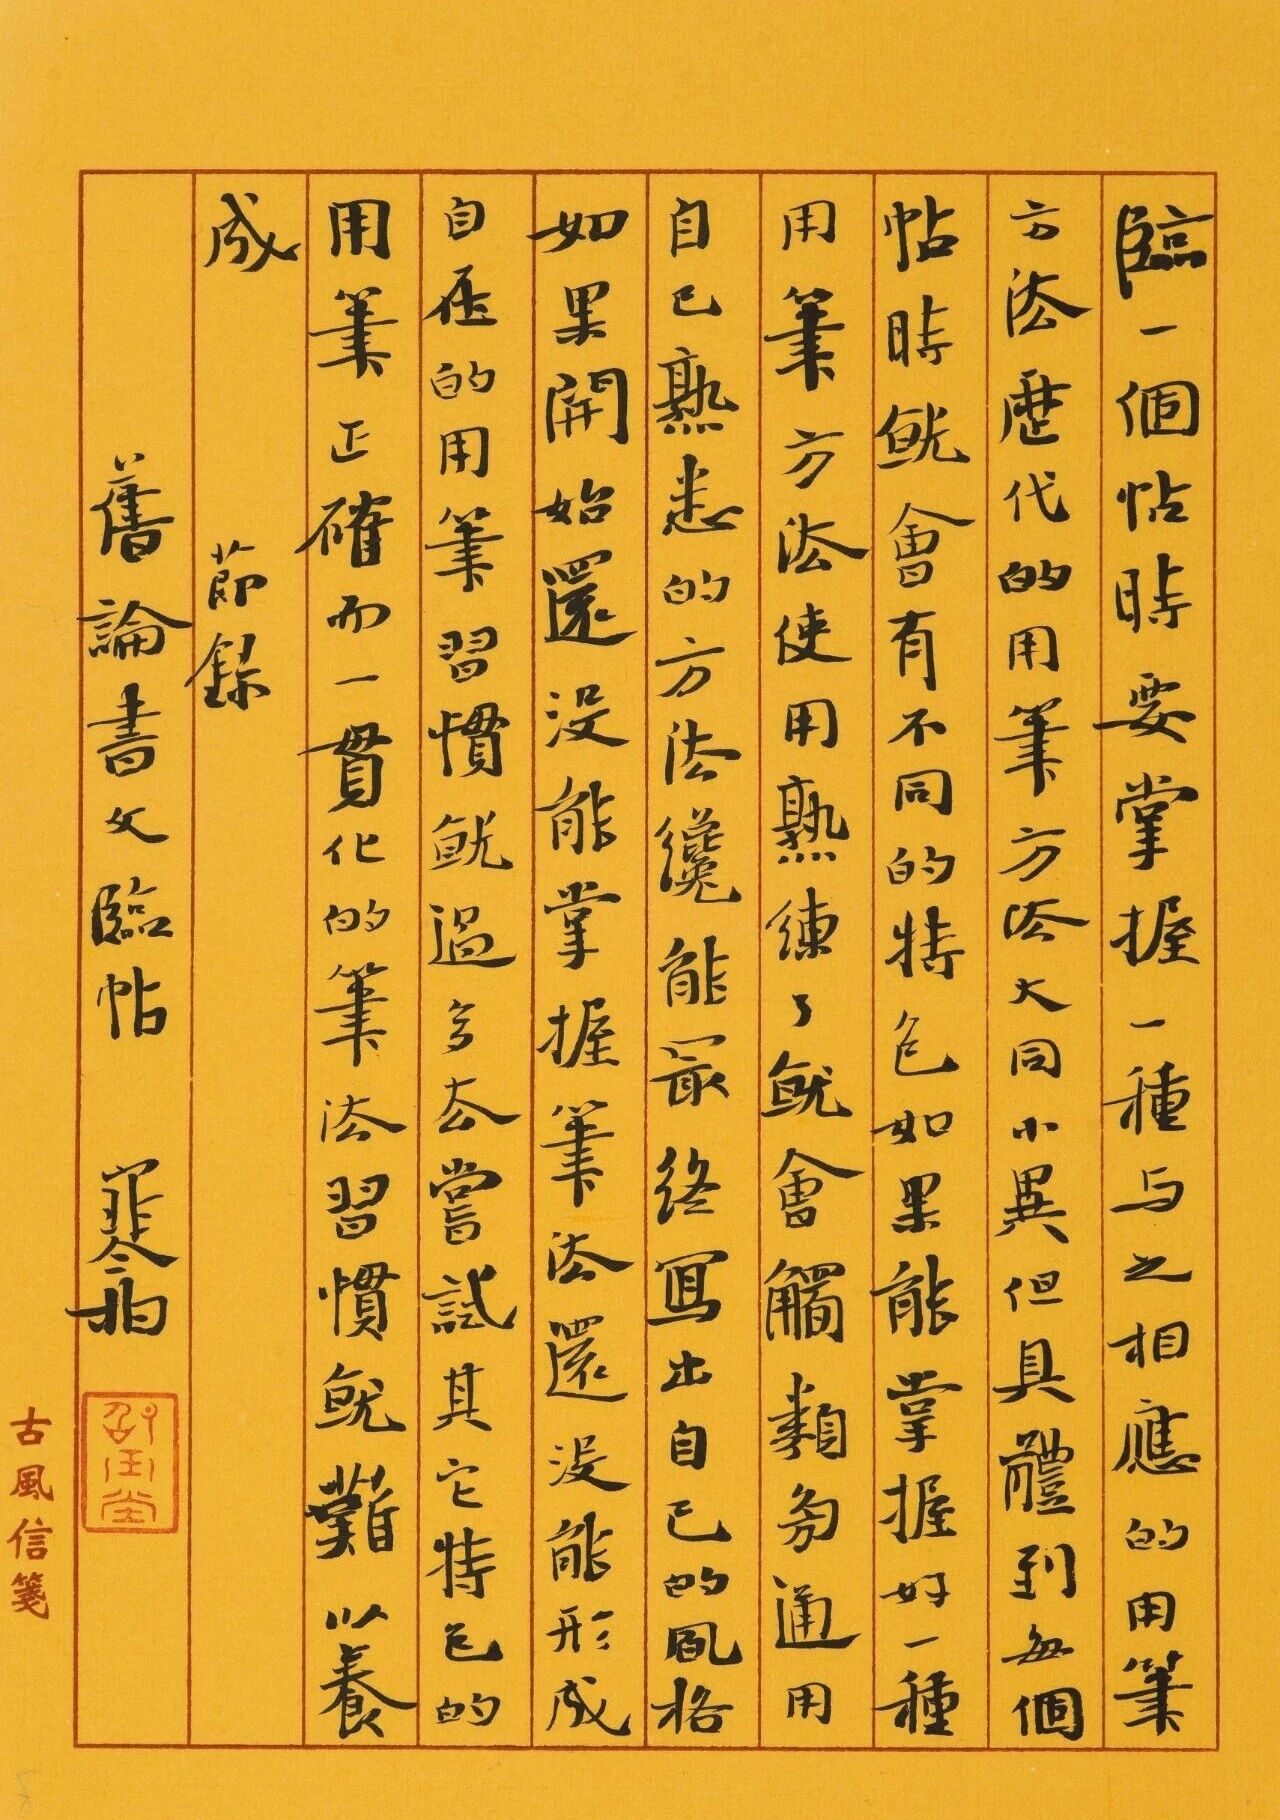 臨一個帖時要掌握一種与之相應的用筆
方法歷代的用筆方法大同小異但具體到每個
帖時就會有不同的特色如果能掌握好一種
用筆方法使用熟練了就會觸類旁通用
自己熟悉的方法纔能最終寫出自己的風格
如果開始還没能掌握筆法還没能形成
自在的用筆習慣就過多去嘗試其它特色的
用筆正確而一貫化的筆法習慣就難以養
成
節錄
舊論書文臨帖
寒
古風信箋